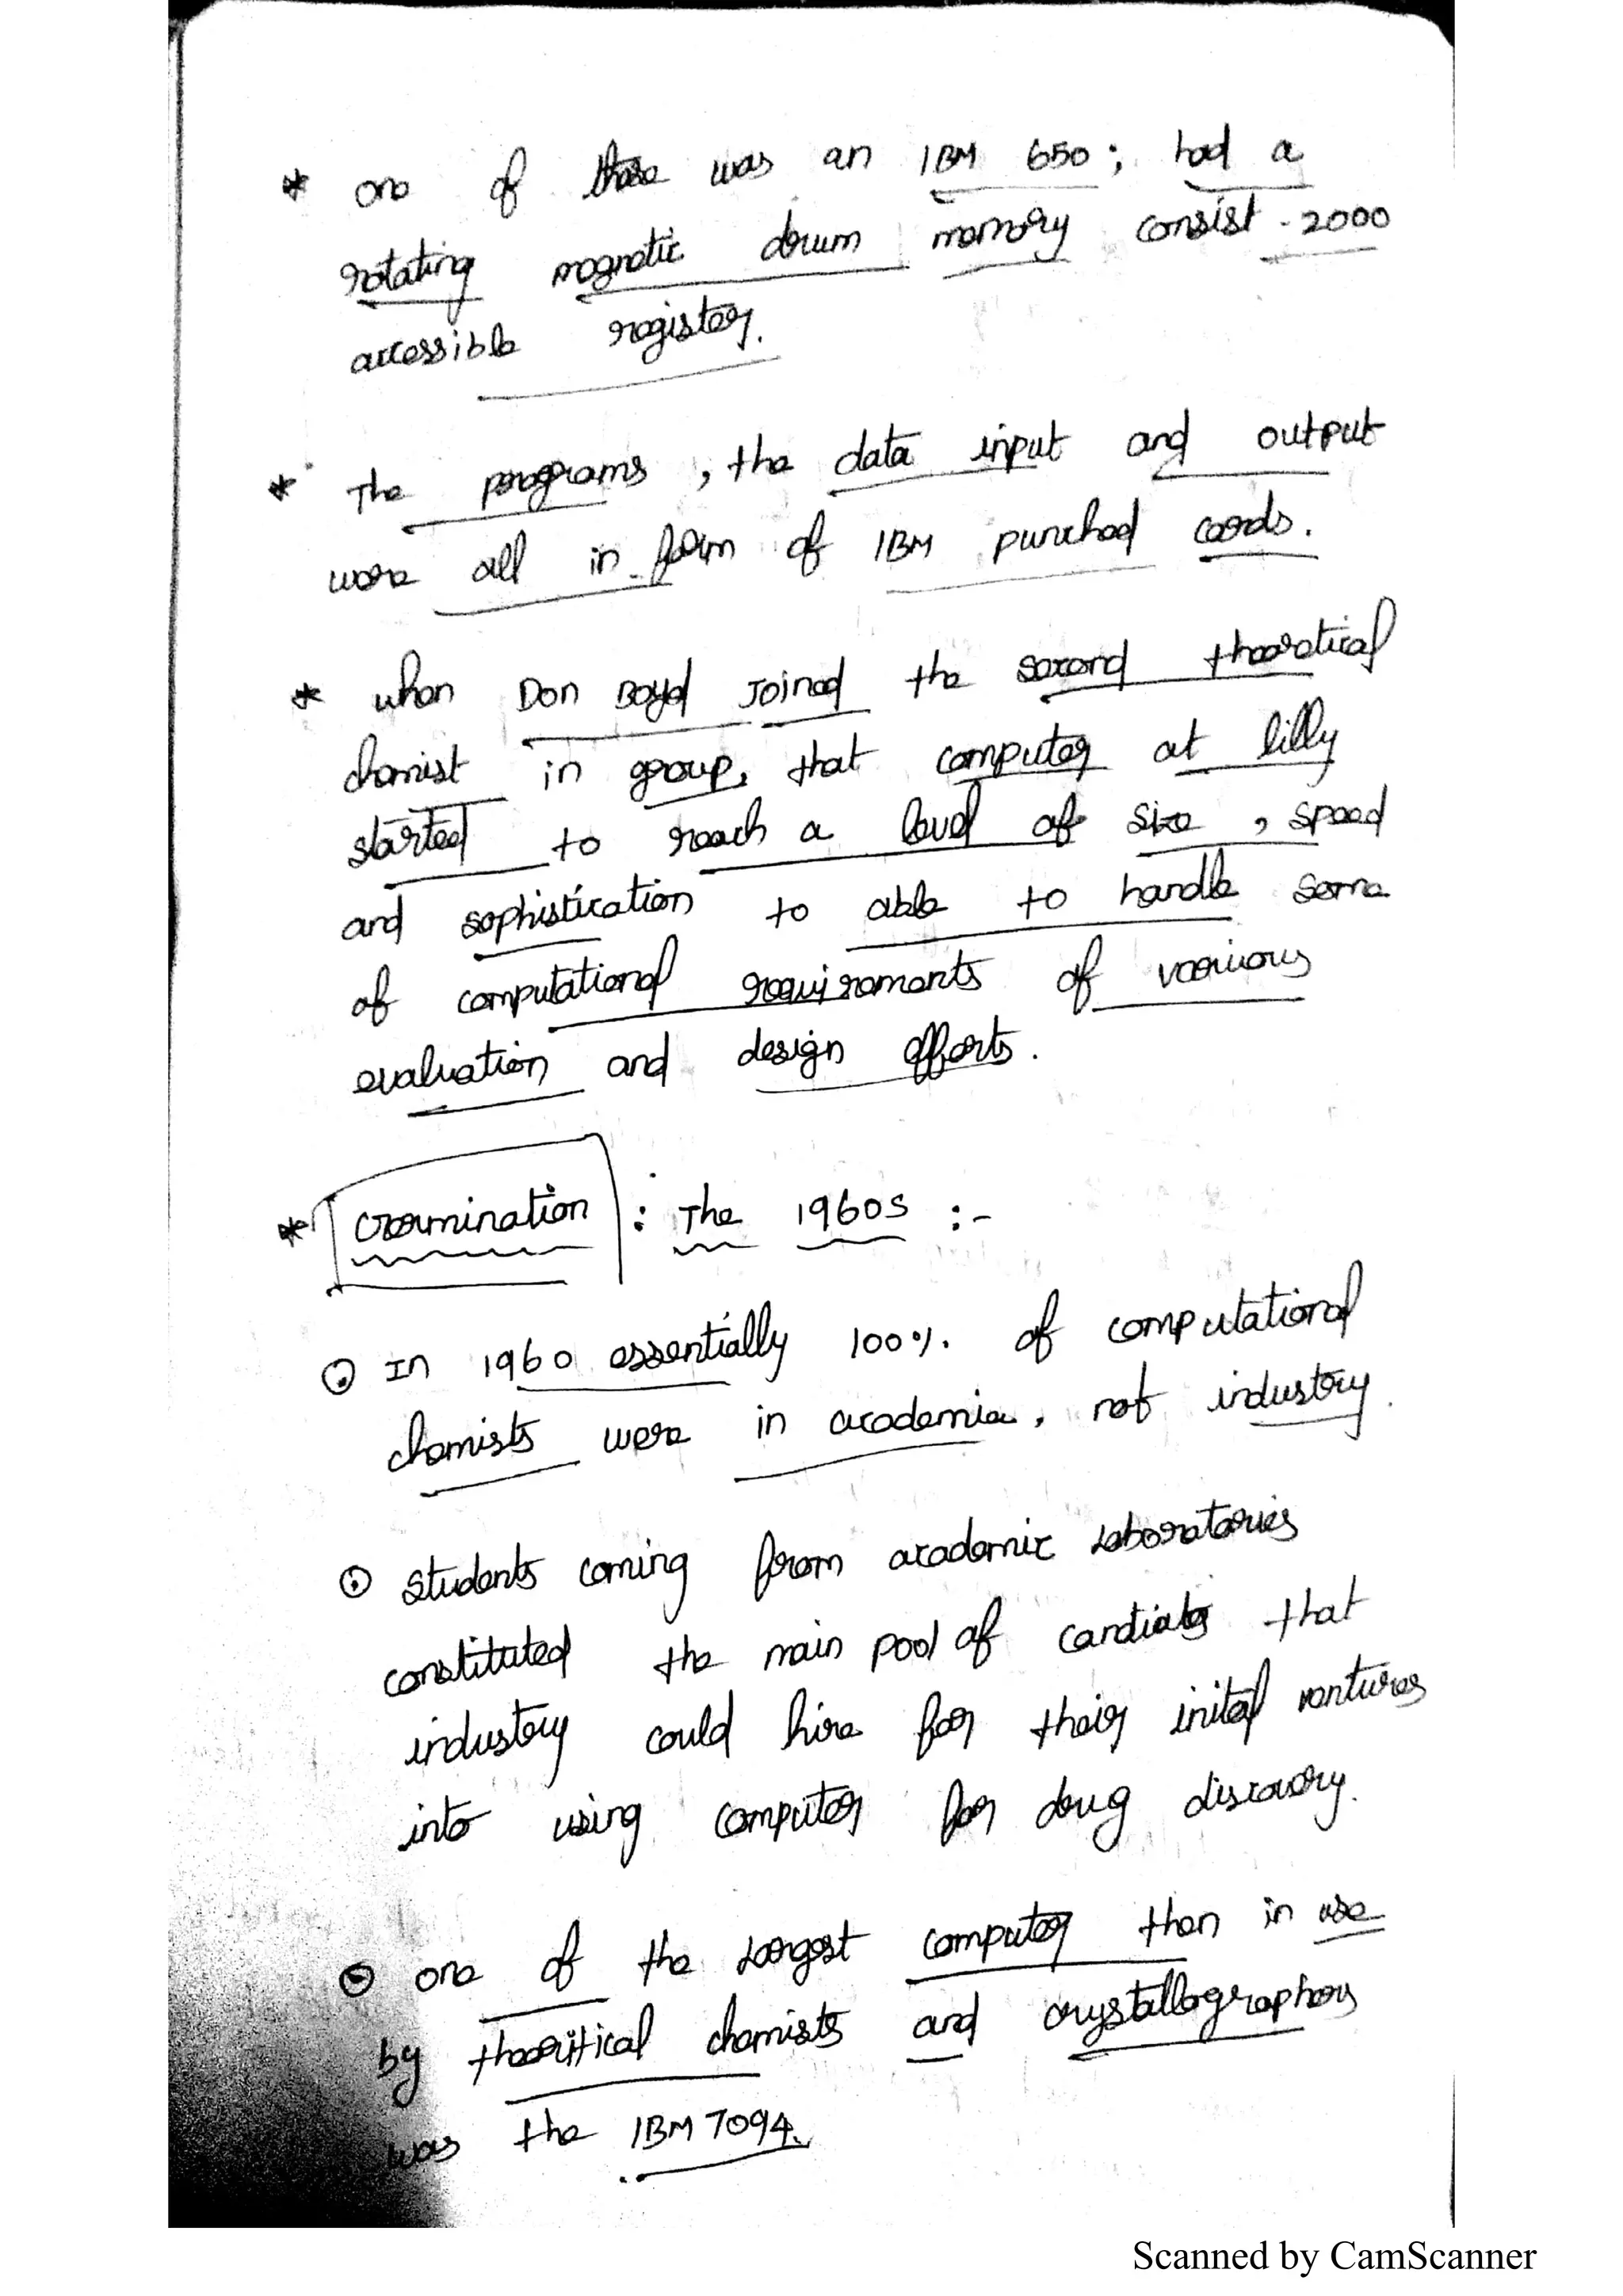 * one of these was an IBM 650; had a
rotating magnetic drum memory consist - 2000
accessible register.
* The programs, the data input and output
were all in form of IBM punched cards.
* when Don Boyd Joined the second theoretical
chemist in group, that computer at lilly
started to reach a level of size, speed
and sophistication to able to handle some
of computational requirements of various
evaluation and design efforts.
* Germination : The 1960s :-
⊙ In 1960 essentially 100%. of computational
chemists were in academia, not industry.
⊙ students coming from academic Laboratories
constituted the main pool of candiats that
industry could hire for their inital ventures
into using computer for drug discovery.
⊙ one of the Largest computer then in use
by theoritical chemists and crystallographers
was the IBM 7094.
Scanned by CamScanner